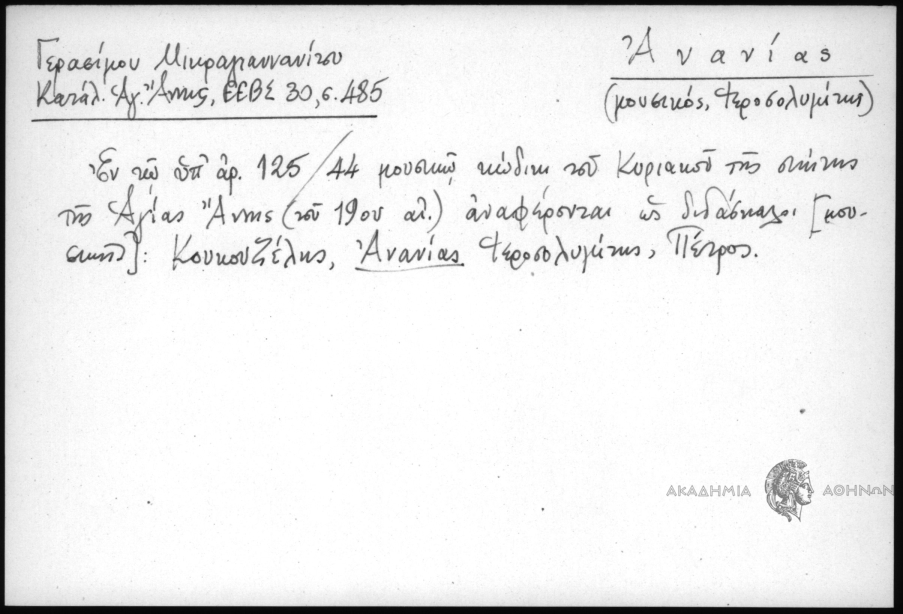 Γερασίμου Μικραγιαννανίτου
Κατάλ. Ἁγ. Ἄννης, ΕΕΒΣ 30, σ. 485
Ἀνανίας
(μουσικός, Ἱεροσολυμίτης)
Ἐν τῷ ὑπ' ἀρ. 125/44 μουσικῷ κώδικι τοῦ Κυριακοῦ τῆς σκήτης
τῆς Ἁγίας Ἄννης (τοῦ 19ου αἰ.) ἀναφέρονται ὡς διδάσκαλοι [μου-
σικῆς]: Κουκουζέλης, Ἀνανίας Ἱεροσολυμίτης, Πέτρος.
ΑΚΑΔΗΜΙΑ ΑΘΗΝΩΝ